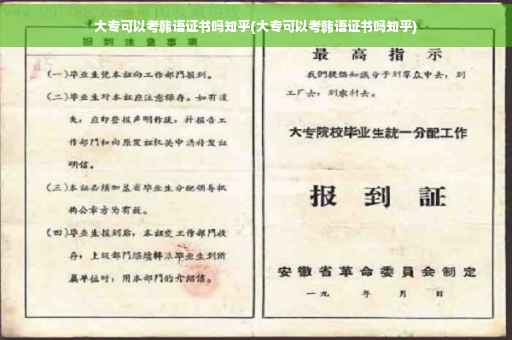 大专可以考韩语证书吗知乎(大专可以考韩语证书吗知乎)
报到注意事项
(一)毕业生凭本证向工作部门报到。
(二)毕业生对本证应注意保存。如有遗
失,应即登报声明作废,并报告工
作部门和向原发证机关申请补发证
明信。
(三)本证必须加盖省毕业生分配领导机
构公章方为有效。
(四)毕业生报到后,本证交工作部门收
存;上级部门
属单位时,用本部门的介绍信。
最高指示
我们提倡知识分子到群众中去,到
工厂去,到农村去。
大专院校毕业生統一分配工作
报到証
安徽省革命委員会制定
一九 年 月 日